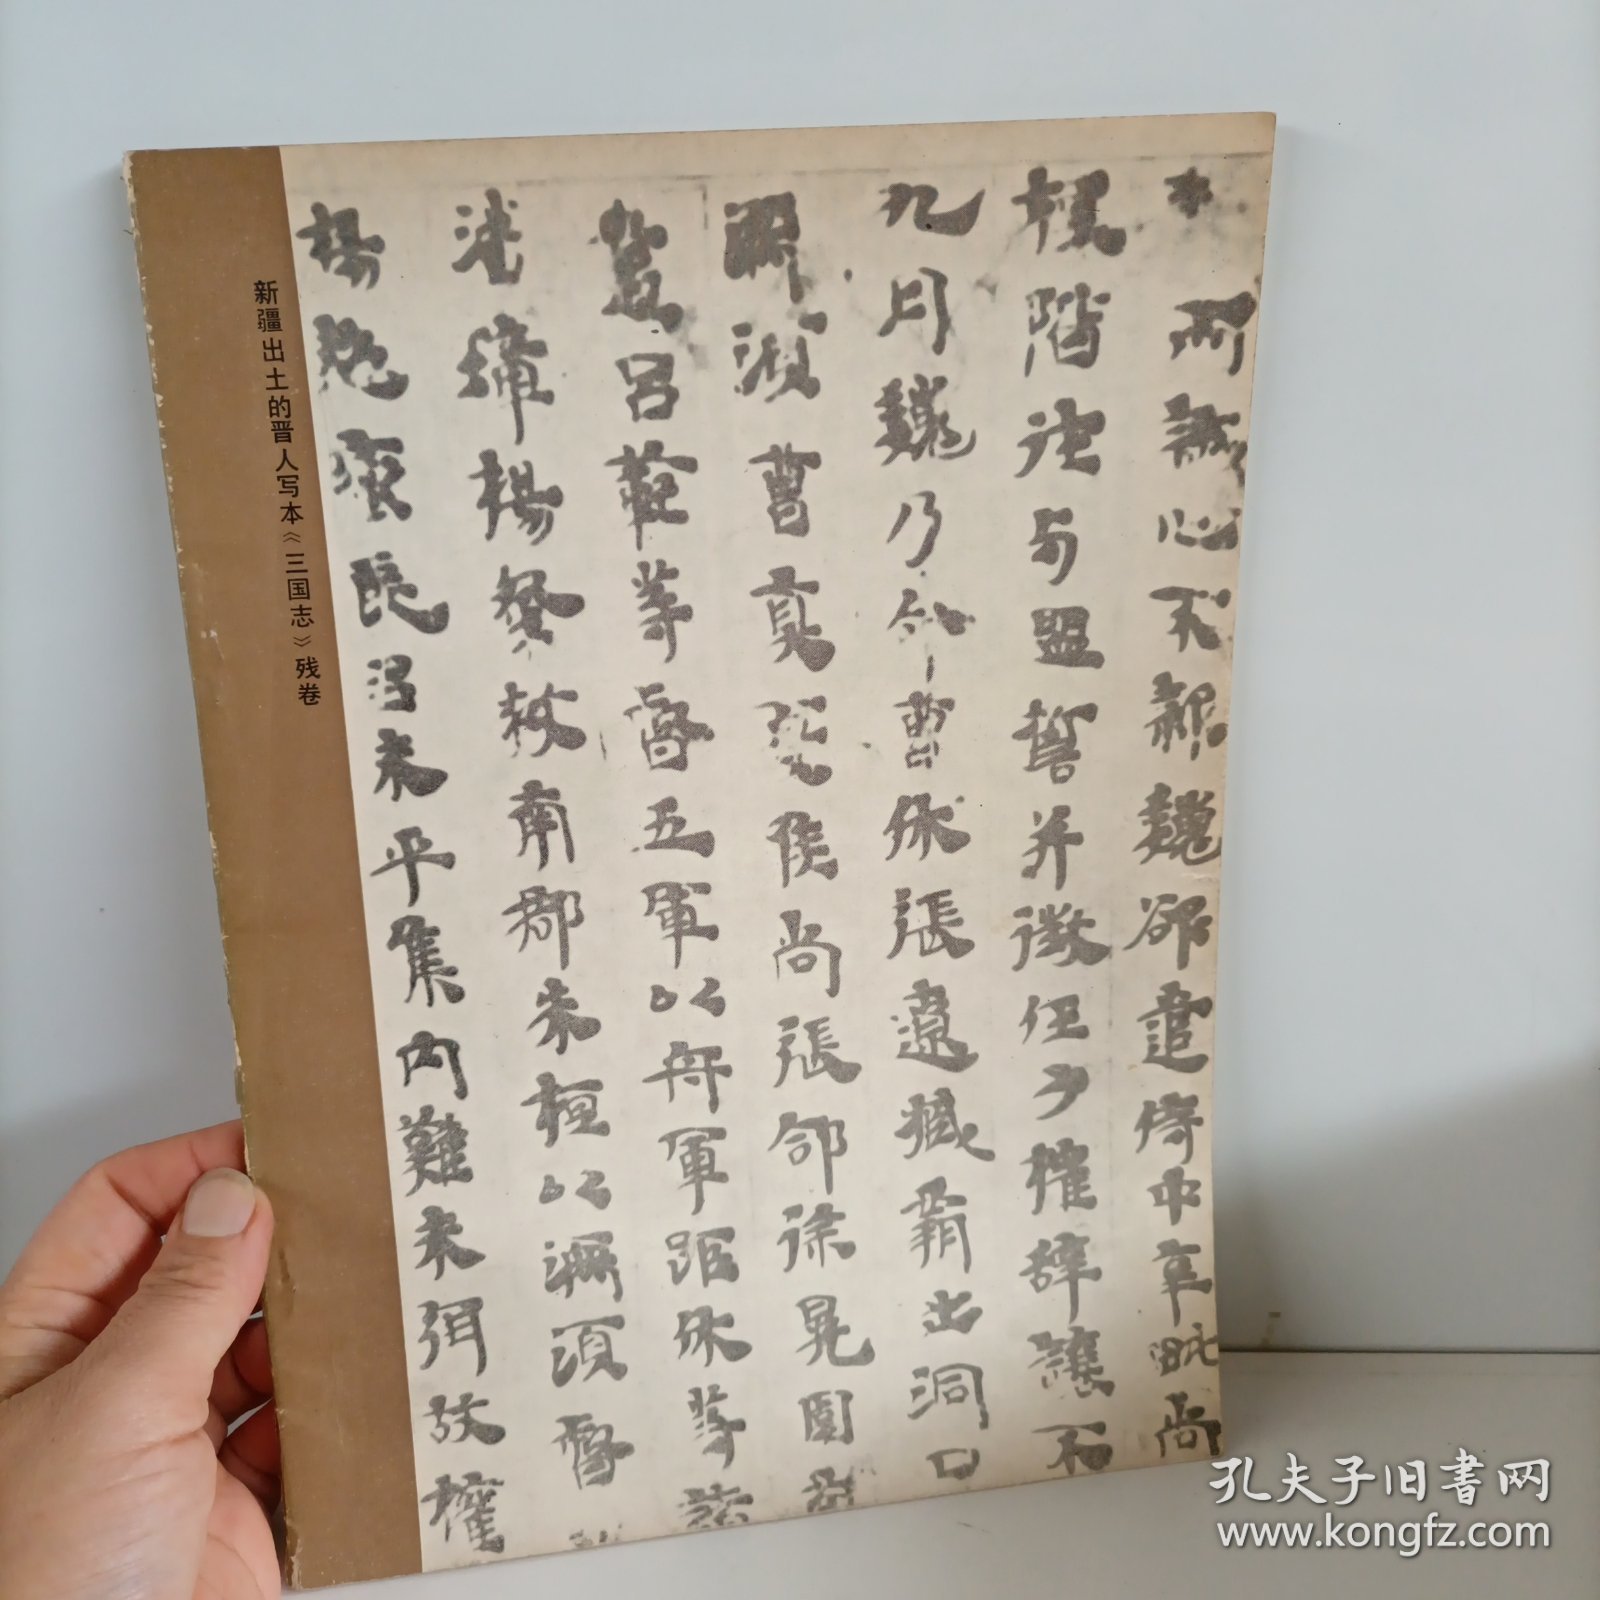 而誠心不款魏欲遣侍中辛毗尚
桓階往与盟誓并徵任子權辭讓不
九月魏乃令曹休張遼臧霸出洞口
濡須曹真夏侯尚張郃徐晃圍南
呂範等督五軍以舟軍距休等諸
璋楊粲救南郡朱桓以濡須督
楊越未平集内難未弭故權
新疆出土的晋人写本《三国志》残卷
孔夫子旧书网
www.kongfz.com